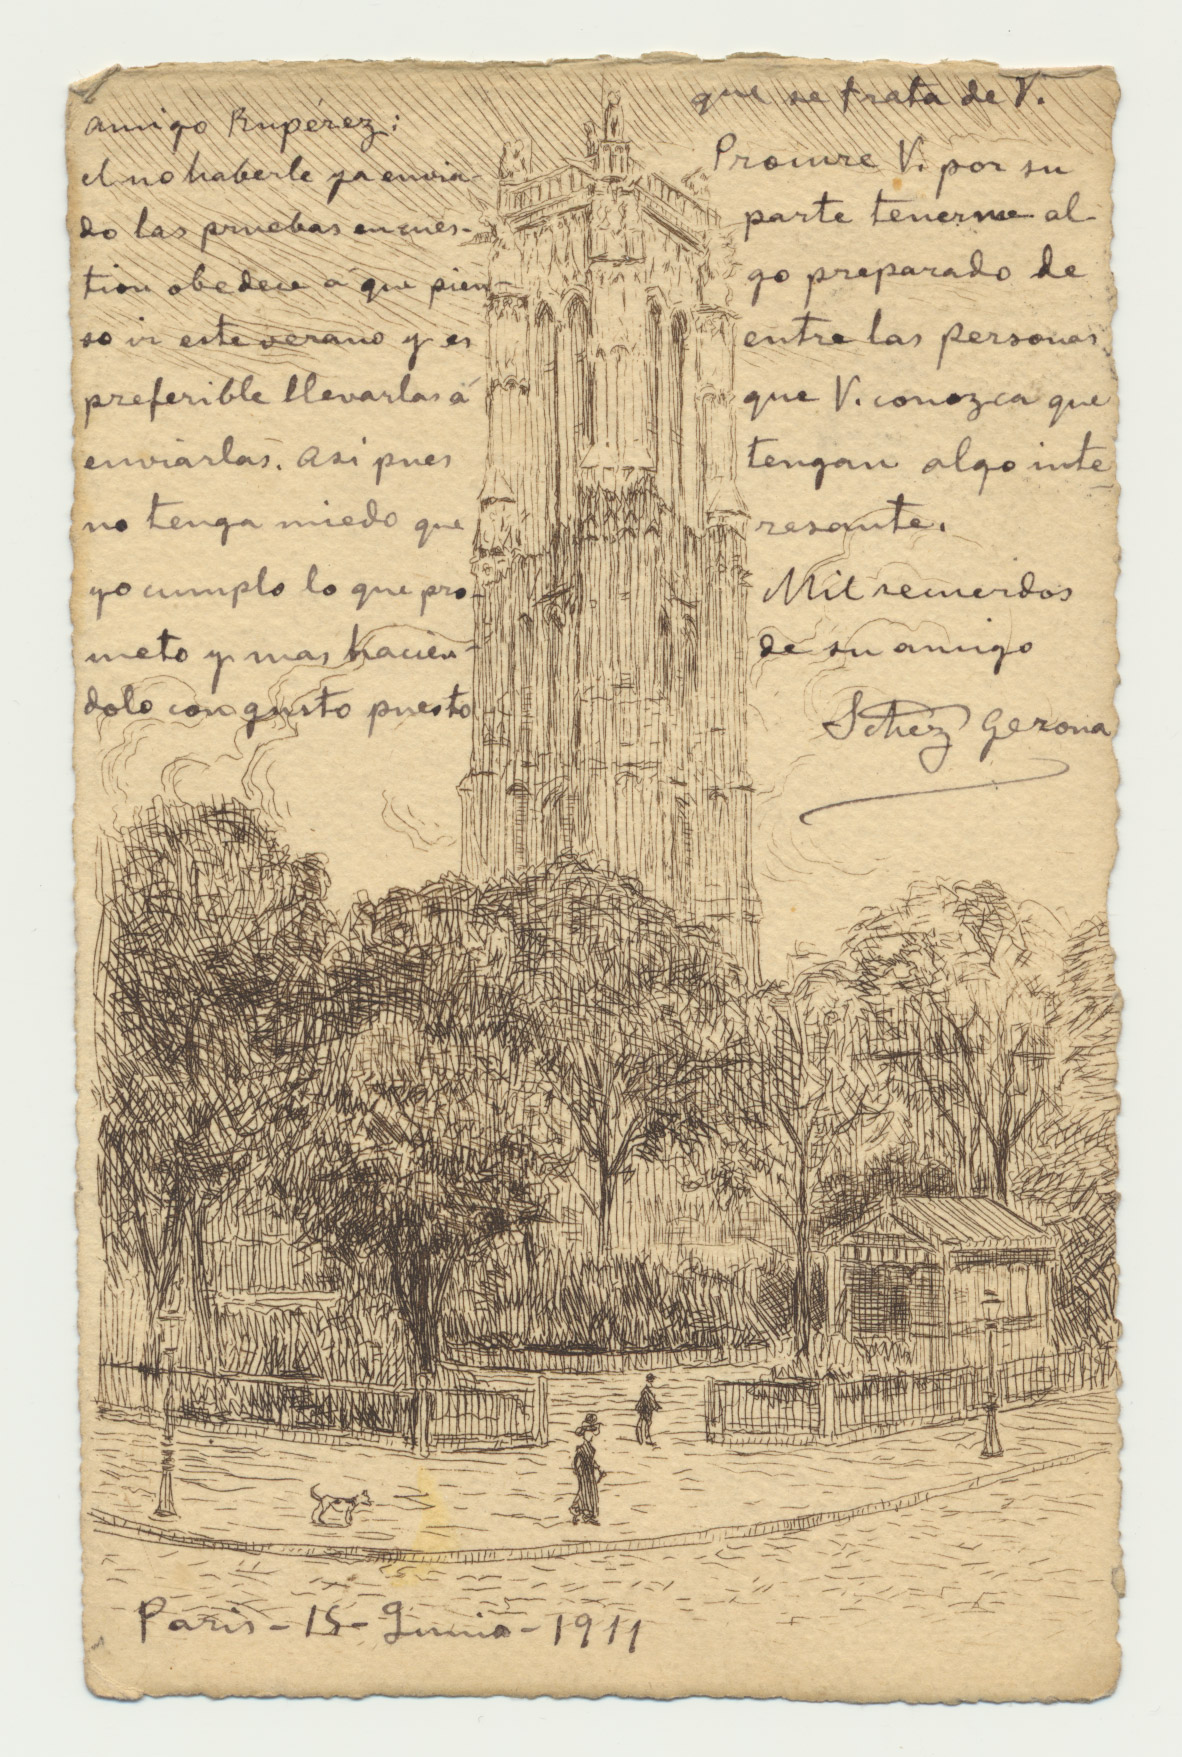 amigo Rupérez:
el no haberle ya envia-
do las pruebas en cues-
tion obedece á que pien-
so ir este verano y es
preferible llevarlas á
enviarlas. Asi pues
no tenga miedo que
yo cumplo lo que pro-
meto y mas hacien-
dolo con gusto puesto
que se trata de V.
Procure V. por su
parte tenerme al-
go preparado de
entre las personas
que V. conozca que
tengan algo inte-
resante.
Mil recuerdos
de su amigo
Schez Gerona
Paris - 15 - Junio - 1911